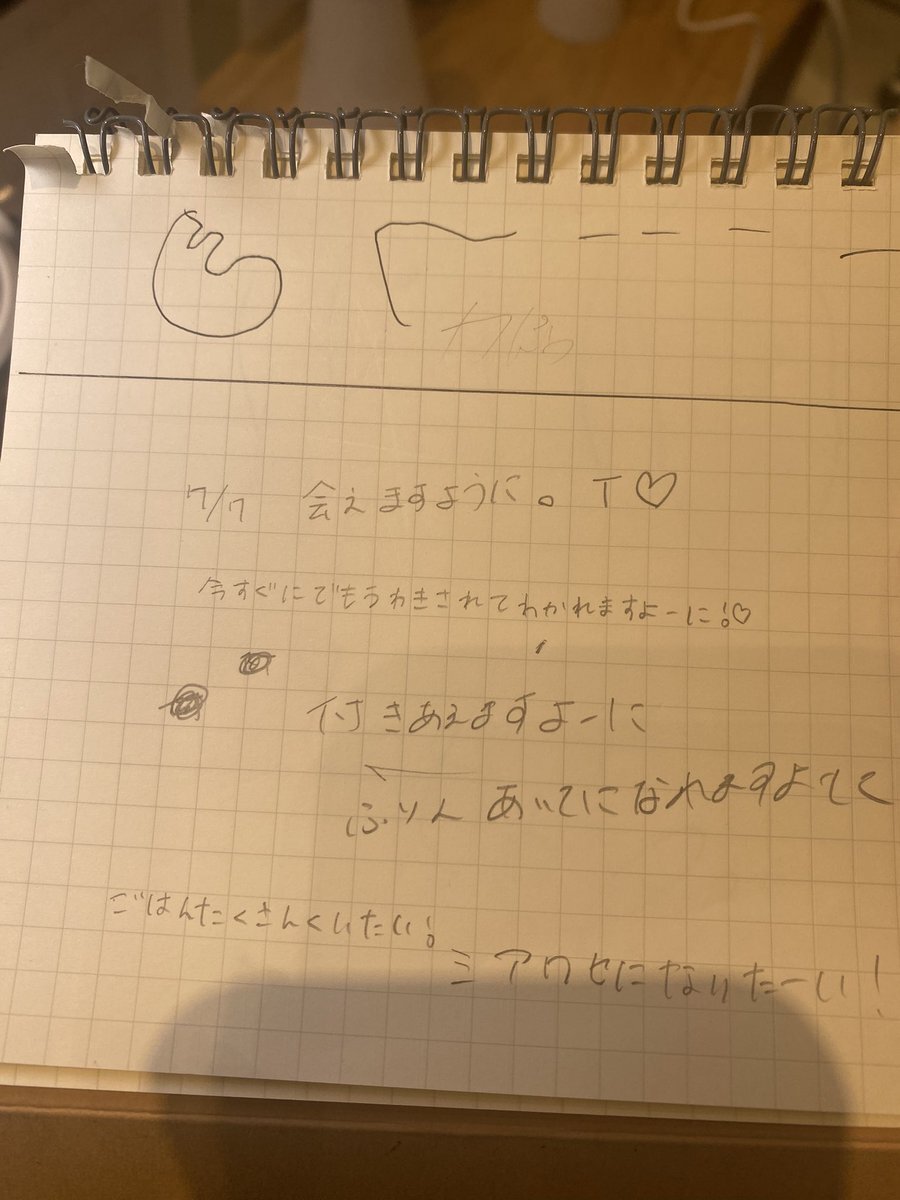 7/7 会えますように。T♡
今すぐにでもうわきされてわかれますよーに!♡
付きあえますよーに
ふりんあいてになれますよてく
ごはんたくさんくいたい!
ミアワセになりたーい!